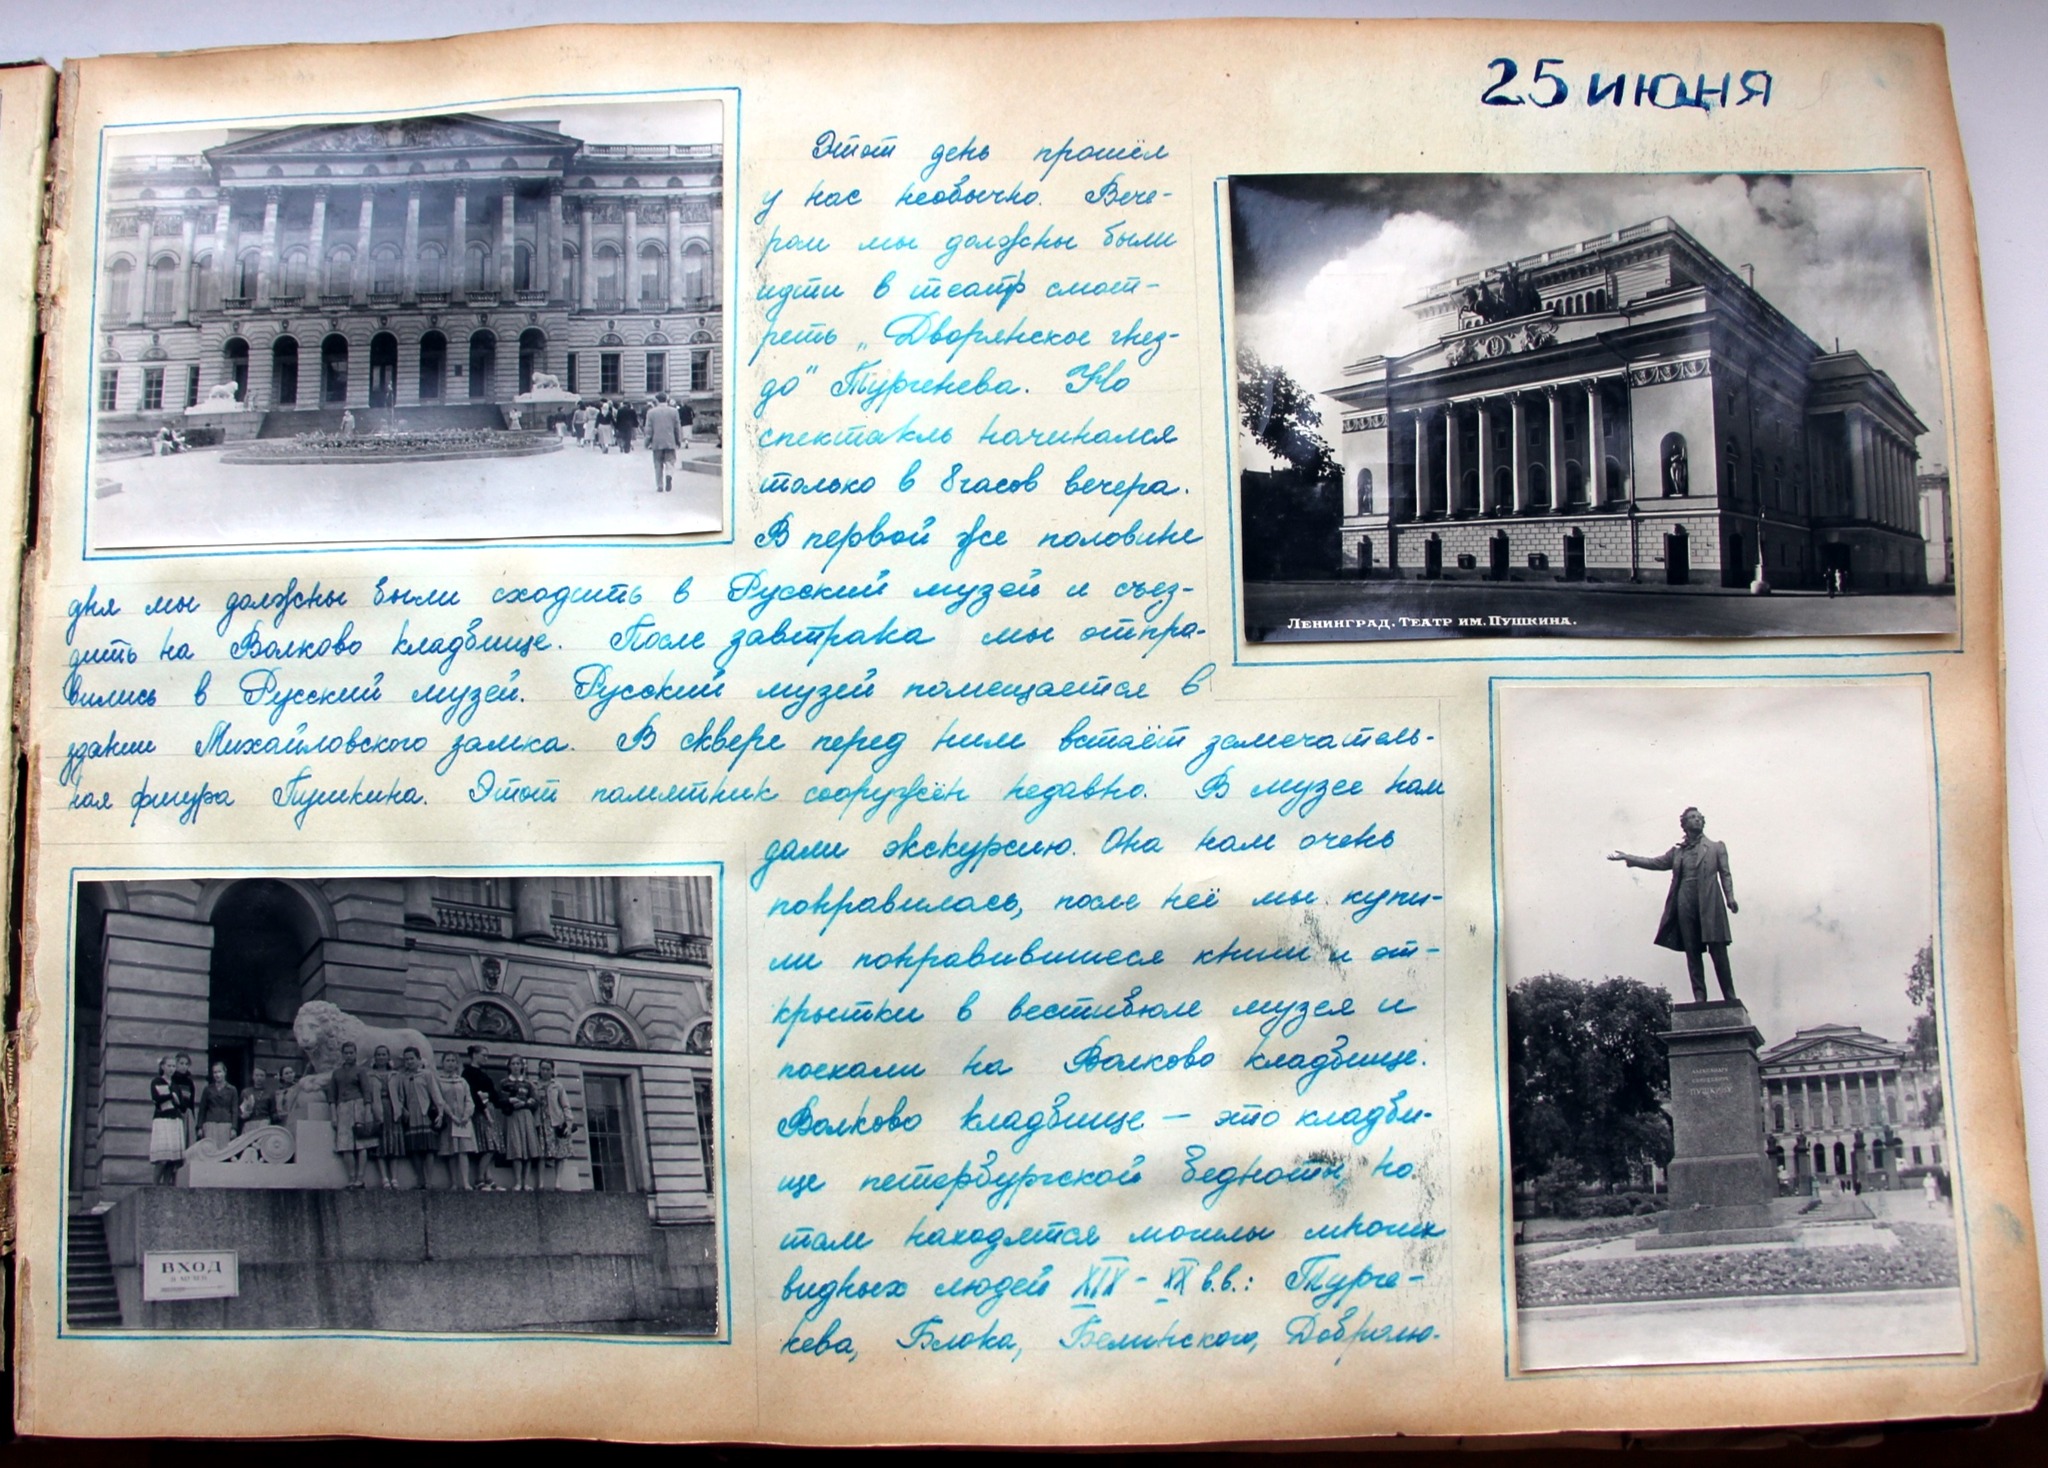 25 июня
Этот день прошёл
у нас необычно. Вече-
ром мы должны были
идти в театр смот-
реть „Дворянское гнез-
до" Тургенева. Но
спектакль начинался
только в 8 часов вечера.
В первой же половине
дня мы должны были сходить в Русский музей и съез-
дить на Волково кладбище. После завтрака мы отпра-
вились в Русский музей. Русский музей помещается в
здании Михайловского замка. В сквере перед ним встаёт замечатель-
ная фигура Пушкина. Этот памятник сооружён недавно. В музее нам
дали экскурсию. Она нам очень
понравилась, после неё мы купи-
ли понравившиеся книги и от-
крытки в вестибюле музея и
поехали на Волково кладбище.
Волково кладбище — это кладби-
ще петербургской бедноты, но
там находятся могилы многих
видных людей XIX - XX в.в.: Турге-
нева, Блока, Белинского, Добролю-
ЛЕНИНГРАД. ТЕАТР ИМ. ПУШКИНА.
ВХОД
В МУЗЕЙ
АЛЕКСАНДРУ
СЕРГЕЕВИЧУ
ПУШКИНУ